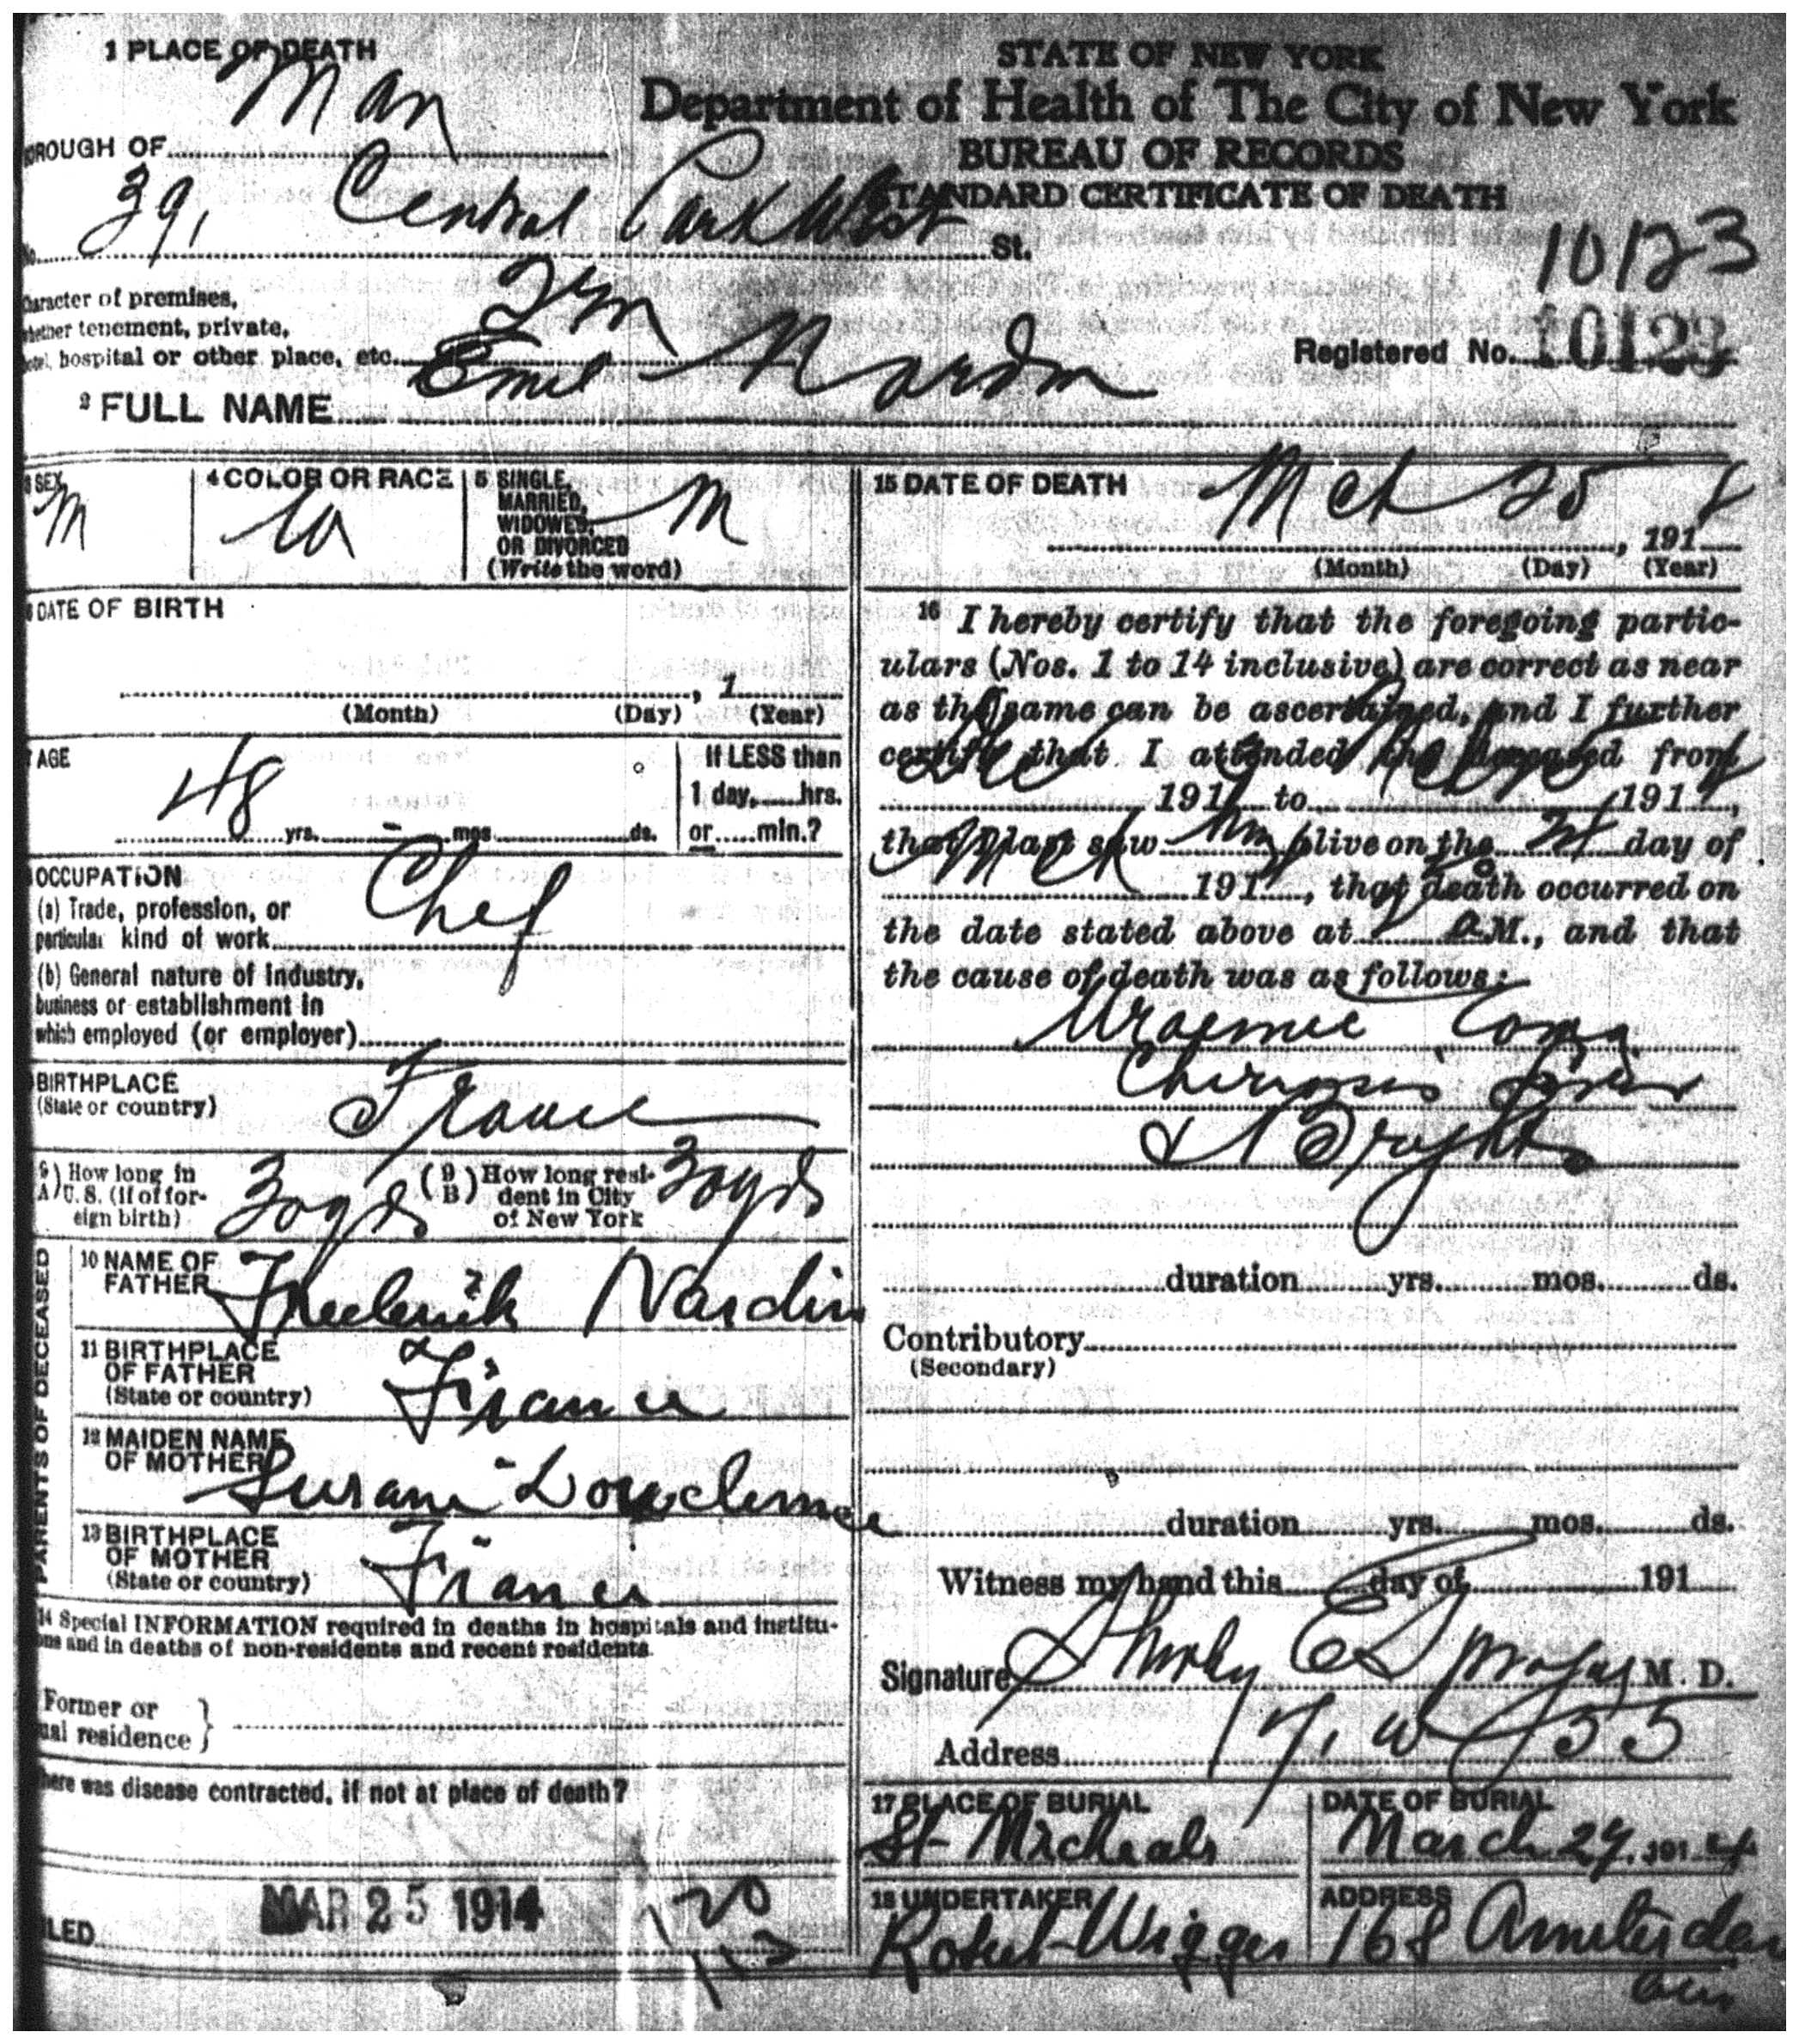 1 PLACE OF DEATH
STATE OF NEW YORK
Department of Health of The City of New York
BUREAU OF RECORDS
STANDARD CERTIFICATE OF DEATH
OROUGH OF Man
No. 39, Central Park West St.
10123
Character of premises,
whether tenement, private,
hotel, hospital or other place, etc.
Registered No. 10123
2 FULL NAME Emil Nardin
3 SEX M
4 COLOR OR RACE W
5 SINGLE, MARRIED, WIDOWED, OR DIVORCED (Write the word) M
15 DATE OF DEATH Mch 25, 191
(Month) (Day) (Year)
6 DATE OF BIRTH
, 1
(Month) (Day) (Year)
7 AGE
48 yrs. – mos. ds.
If LESS than
1 day, hrs.
or min.?
OCCUPATION
(a) Trade, profession, or
particular kind of work Chef
(b) General nature of industry,
business or establishment in
which employed (or employer)
BIRTHPLACE
(State or country) France
9 A) How long in U. S. (if of foreign birth) 30 yrs
(9 B) How long resident in City of New York 30 yrs
PARENTS OF DECEASED
10 NAME OF FATHER Frederick Nardin
11 BIRTHPLACE OF FATHER
(State or country) France
12 MAIDEN NAME OF MOTHER Susane
13 BIRTHPLACE OF MOTHER
(State or country) France
14 Special INFORMATION required in deaths in hospitals and institu-
ons and in deaths of non-residents and recent residents.
Former or
ual residence }
here was disease contracted, if not at place of death?
LED MAR 25 1914
120
113
16 I hereby certify that the foregoing partic-
ulars (Nos. 1 to 14 inclusive) are correct as near
as the same can be ascertained, and I further
certify that I attended the deceased from
191 to 191,
that I last saw him alive on the day of
Mch 191, that death occurred on
the date stated above at M., and that
the cause of death was as follows:
Uraemic Coma
Chirrosis Liver
& Brights
duration yrs. mos. ds.
Contributory
(Secondary)
duration yrs. mos. ds.
Witness my hand this day of 191
Signature M. D.
Address 17 W 55
17 PLACE OF BURIAL
St Micheals
DATE OF BURIAL
March 27, 1914
18 UNDERTAKER
Robert Wigger
ADDRESS
168 Amsterdam
ave